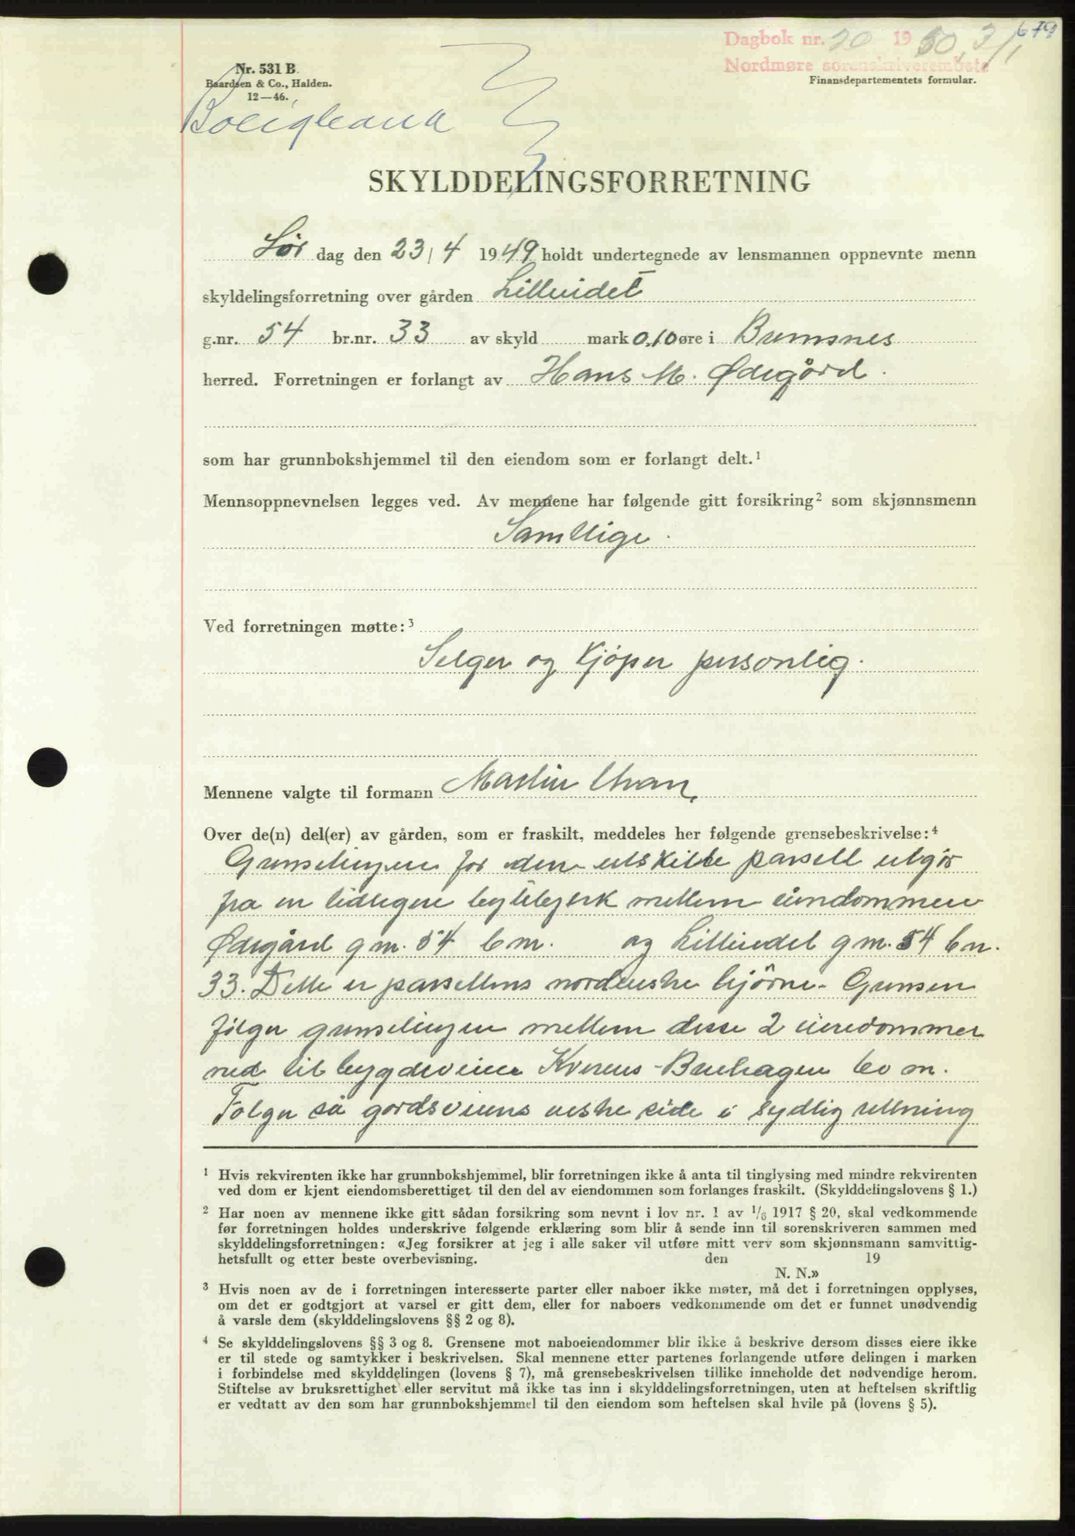 679
Dagbok nr. 20 1950, 3/1
Nordmøre sorenskriverembete
Nr. 531 B.
Baardsen & Co., Halden.
12—46.
Finansdepartementets formular.
SKYLDDELINGSFORRETNING
Lør dag den 23/4 1949 holdt undertegnede av lensmannen oppnevnte menn
skyldelingsforretning over gården Lilleidet
g.nr. 54 br.nr. 33 av skyld mark 0,10 øre i Bremsnes
herred. Forretningen er forlangt av Hans M. Ødegård.
som har grunnbokshjemmel til den eiendom som er forlangt delt.¹
Mennsoppnevnelsen legges ved. Av mennene har følgende gitt forsikring² som skjønnsmenn
Samtlige.
Ved forretningen møtte:³
Selger og Kjøper personlig.
Mennene valgte til formann Martin
Over de(n) del(er) av gården, som er fraskilt, meddeles her følgende grensebeskrivelse:⁴
Grenselinjen for den utskilte parsell utgår
fra en tidligere byttebjerk mellem eiendommene
Ødegård g nr. 54 b nr. og Lilleidet g nr. 54 b nr.
33. Dette er parsellens nordvestre hjørne. Grensen
følger grenselinjen mellem disse 2 eiendommer
ned til bygdeveien Kvernes-Bruhagen 60 m.
Følger så gårdsveiens vestre side i sydlig retning
¹ Hvis rekvirenten ikke har grunnbokshjemmel, blir forretningen ikke å anta til tinglysing med mindre rekvirenten
ved dom er kjent eiendomsberettiget til den del av eiendommen som forlanges fraskilt. (Skylddelingslovens § 1.)
² Har noen av mennene ikke gitt sådan forsikring som nevnt i lov nr. 1 av 1/6 1917 § 20, skal vedkommende
før forretningen holdes underskrive følgende erklæring som blir å sende inn til sorenskriveren sammen med
skylddelingsforretningen: «Jeg forsikrer at jeg i alle saker vil utføre mitt verv som skjønnsmann samvittig-
hetsfullt og etter beste overbevisning. den 19
N. N.»
³ Hvis noen av de i forretningen interesserte parter eller naboer ikke møter, må det i forretningen opplyses,
om det er godtgjort at varsel er gitt dem, eller for naboers vedkommende om det er funnet unødvendig
å varsle dem (skylddelingslovens §§ 2 og 8).
⁴ Se skylddelingslovens §§ 3 og 8. Grensene mot naboeiendommer blir ikke å beskrive dersom disses eiere ikke
er til stede og samtykker i beskrivelsen. Skal mennene etter partenes forlangende utføre delingen i marken
i forbindelse med skylddelingen (lovens § 7), må grensebeskrivelsen tillike inneholde det nødvendige herom.
Stiftelse av bruksrettighet eller servitut må ikke tas inn i skylddelingsforretningen, uten at heftelsen skriftlig
er vedtatt av den som har grunnbokshjemmel til den eiendom som heftelsen skal hvile på (lovens § 5).